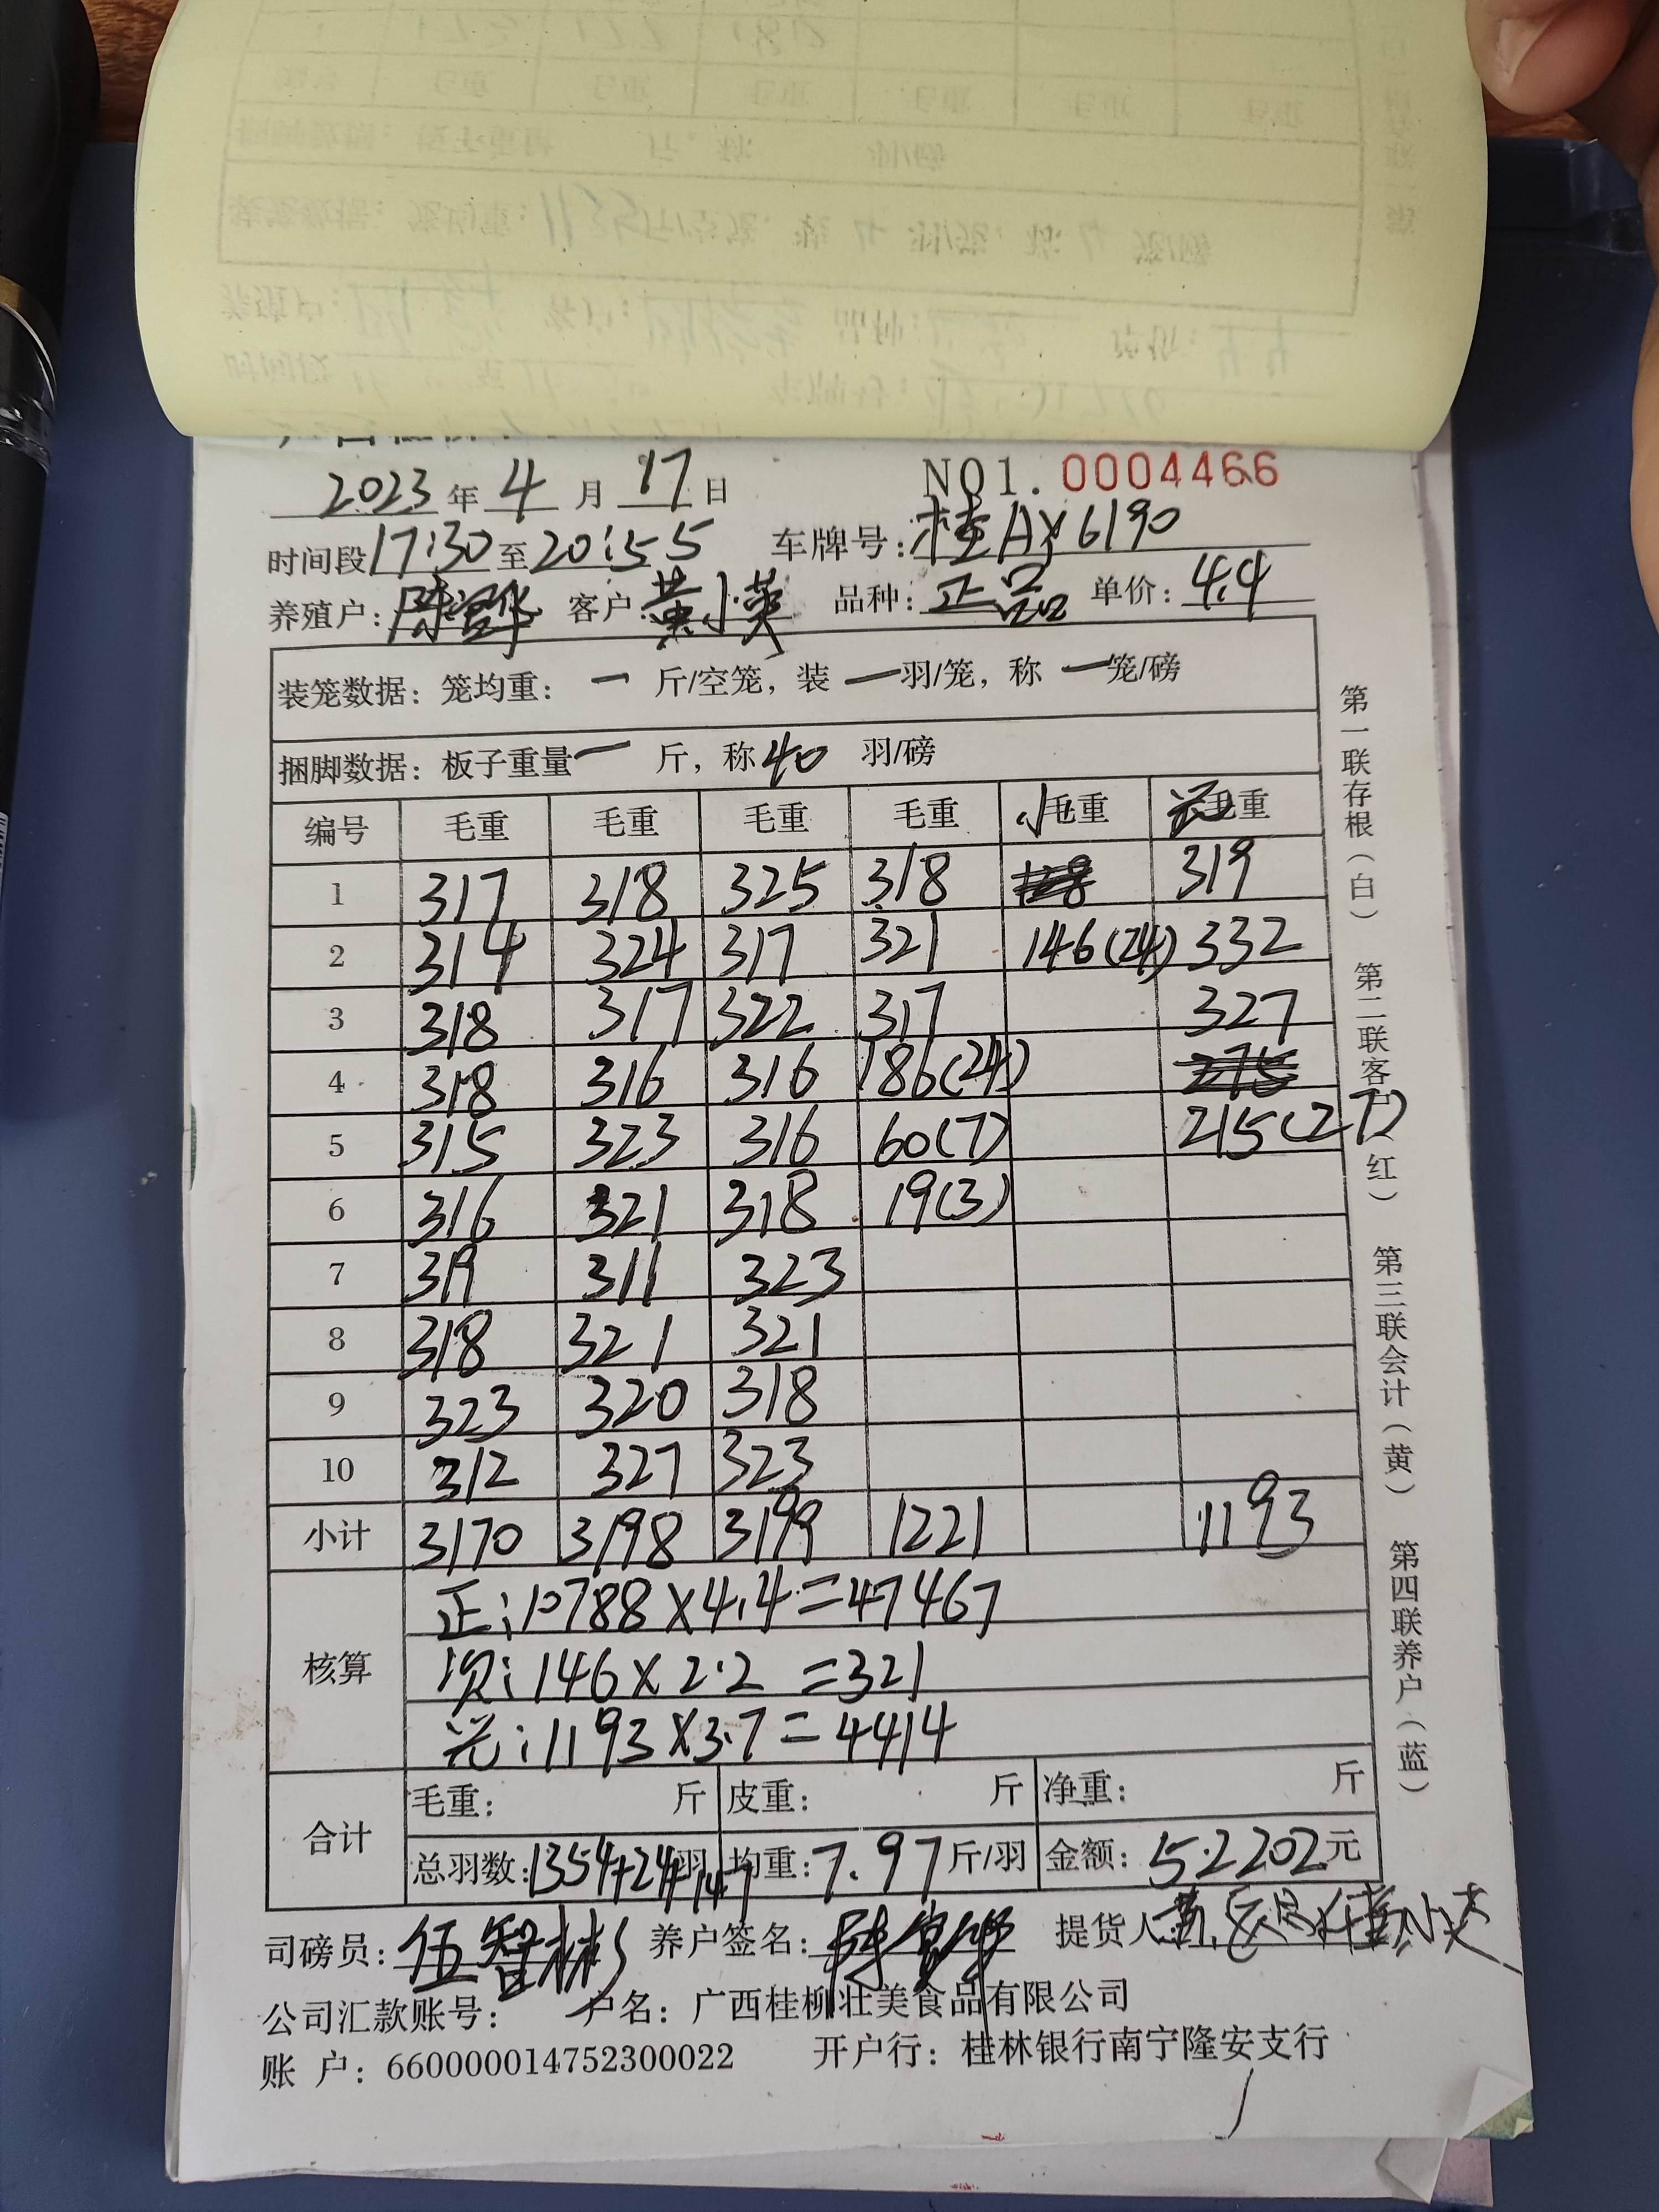 2023 年 4 月 17 日 NO1. 0004466
时间段 17:30 至 20:55 车牌号: 桂AX6190
养殖户: 客户: 黄小英 品种: 正品 单价: 4.4
装笼数据: 笼均重: 一 斤/空笼, 装 一 羽/笼, 称 一 笼/磅
捆脚数据: 板子重量 一 斤, 称 40 羽/磅
编号 毛重 毛重 毛重 毛重 小毛重 毛重
1 317 318 325 318 319
2 314 324 317 321 146(24) 332
3 318 317 322 317 327
4 318 316 316 186(24) 275
5 315 323 316 60(7) 215(27)
6 316 321 318 19(3)
7 319 311 323
8 318 321 321
9 323 320 318
10 312 327 323
小计 3170 3198 3199 1221 1193
核算
正: 10788×4.4=47467
次: 146×2.2=321
1193×3.7=4414
合计
毛重: 斤 皮重: 斤 净重: 斤
总羽数: 1354+24+147 羽 均重: 7.97 斤/羽 金额: 52202 元
司磅员: 伍智彬 养户签名: 提货人:
公司汇款账号: 户名: 广西桂柳壮美食品有限公司
账 户: 660000014752300022 开户行: 桂林银行南宁隆安支行
第一联存根(白) 第二联客户(红) 第三联会计(黄) 第四联养户(蓝)